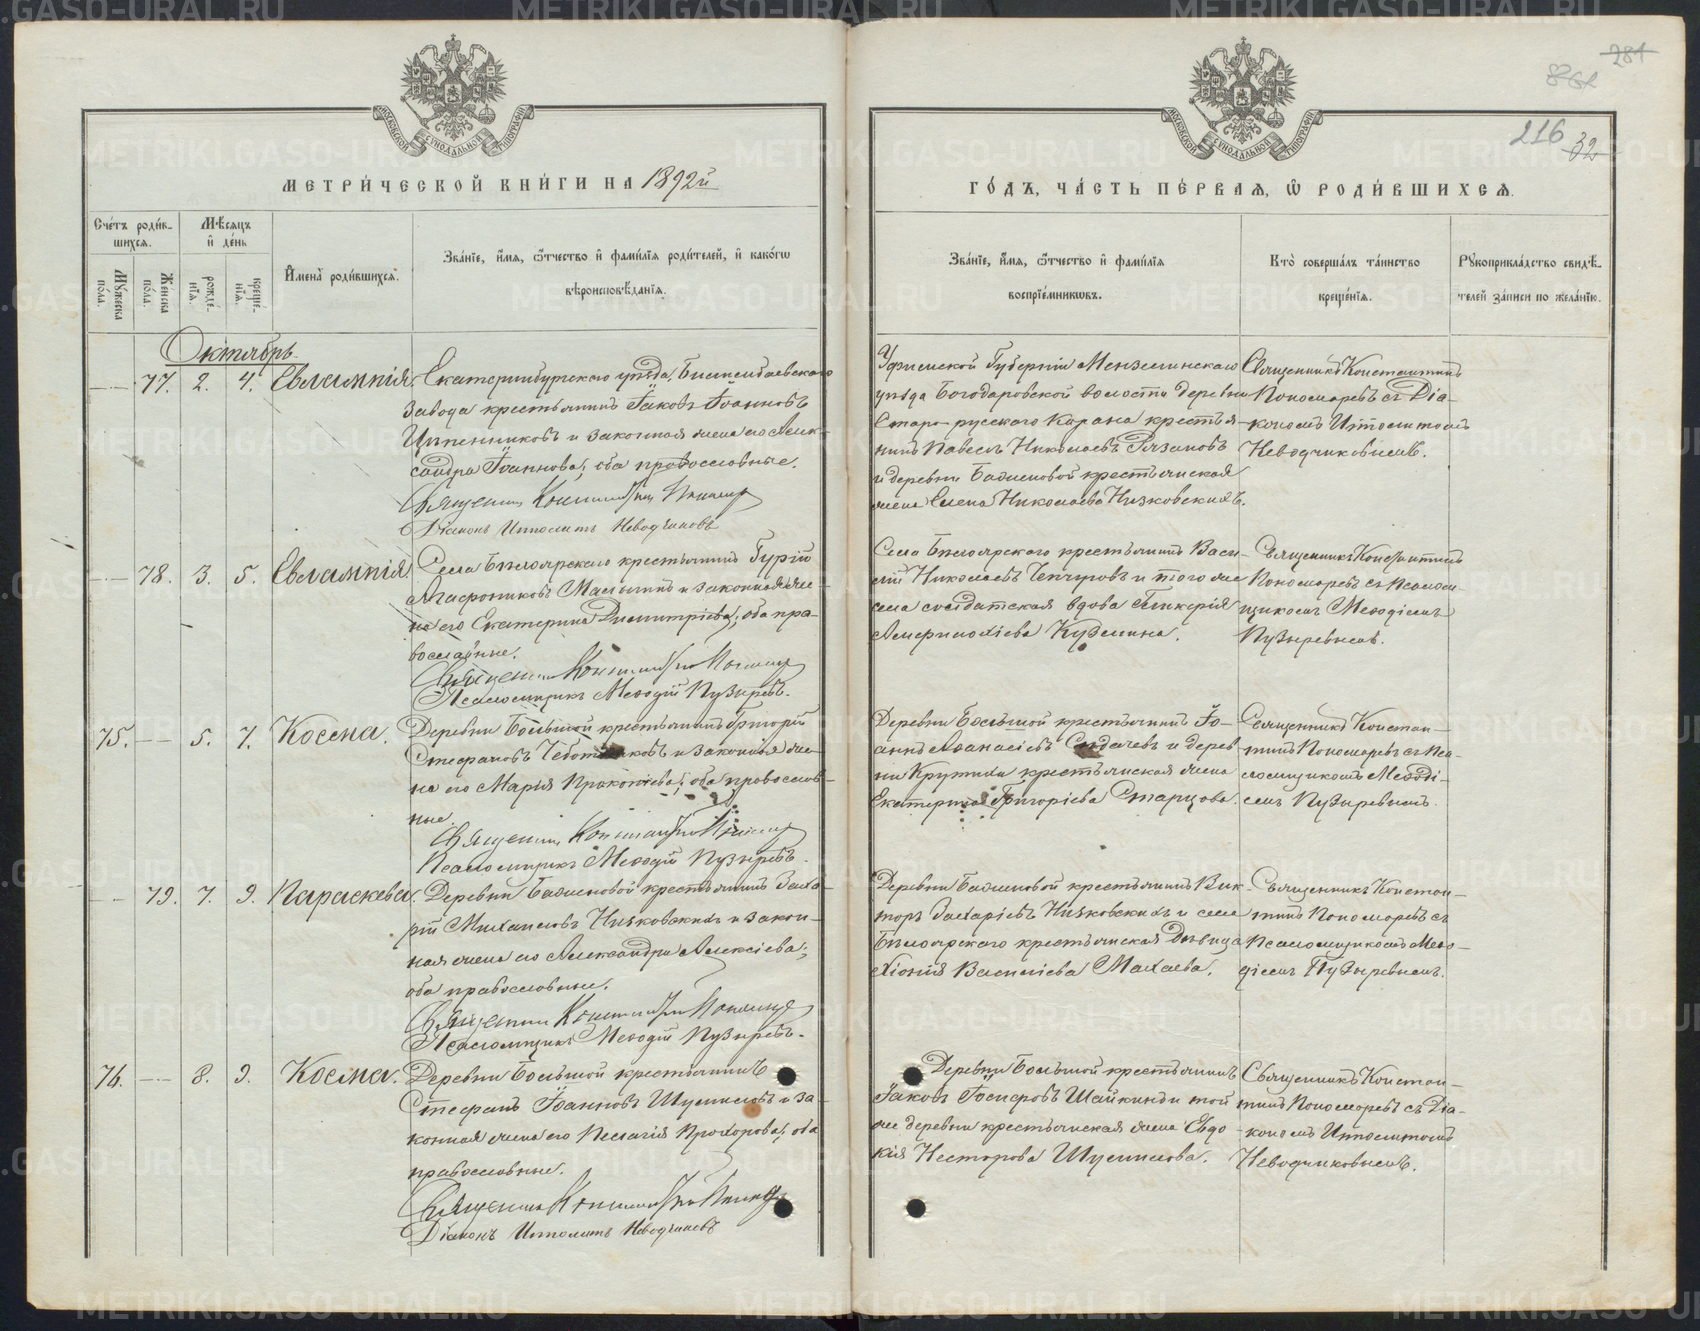 МЕТРИ́ЧЕСКОЙ КНИ́ГИ НА 1892й
Сче́тъ роди́в-
шихся.
Мѣ́сяцъ
и҆ де́нь
Му́жеска
по́ла.
Же́нска
по́ла.
рожде́-
нїѧ.
креще́-
нїѧ.
И҆мена̀ роди́вшихся.
Зва́нїе, и҆́мѧ, ѻ҆́тчество и҆ фами́лїѧ роди́телей, и҆ како́гѡ
вѣроисповѣ́данїѧ.
Октябрь.
77. 2. 4. Евлампія.
Екатеринбургскаго уѣзда, Билимбаевскаго
завода крестьянинъ Іаковъ Іоанновъ
и законная жена его Алек-
сандра Іоаннова; оба православные.
Священникъ Константинъ Пономаревъ
Діаконъ Ипполитъ Неводчиковъ
78. 3. 5. Евлампія
Села Бѣлоярскаго крестьянинъ Гурій
и законная же-
на его Екатерина Димитріева; оба пра-
вославные.
Священникъ Константинъ Пономаревъ
Псаломщикъ Меѳодій Пузыревъ.
75. 5. 7. Косма.
Деревни Большой крестьянинъ Григорій
Стефановъ и законная же-
на его Марія Прокопіева; оба православ-
ные.
Священникъ Константинъ Пономаревъ
Псаломщикъ Меѳодій Пузыревъ.
79. 7. 9. Параскева.
Деревни Баженовой крестьянинъ Заха-
рій Михаиловъ Низковскихъ и закон-
ная жена его Александра Алексіева;
оба православные.
Священникъ Константинъ Пономаревъ
Псаломщикъ Меѳодій Пузыревъ.
76. 8. 9. Косма.
Деревни Большой крестьянинъ
Стефанъ Іоанновъ Шумиловъ и за-
конная жена его Пелагія Прохорова; оба
православные.
Священникъ Константинъ Пономаревъ
Діаконъ Ипполитъ Неводчиковъ
281
216 32
ГО́ДЪ, ЧА́СТЬ ПЕ́РВАЯ, Ѽ РОДИ́ВШИХСЯ.
Зва́нїе, и҆́мѧ, ѻ҆́тчество и҆ фами́лїѧ
воспрїе́мникѡвъ.
Кто̀ соверша́лъ та́инство
креще́нїѧ.
Рꙋкоприкла́дство свидѣ́-
телей за́писи по жела́нїю.
Уфимской Губерніи Мензелинскаго
уѣзда Богодаровской волости деревни
Старо-русскаго Карана крестья-
нинъ Павелъ Николаевъ Рязановъ
и деревни Баженовой крестьянская
жена Елена Николаева Низковскихъ.
Священникъ Константинъ
Пономаревъ съ Діа-
кономъ Ипполитомъ
Неводчиковымъ.
Села Бѣлоярскаго крестьянинъ Васи-
лій Николаевъ Чепчуговъ и того же
села солдатская вдова Гликерія
Кузьмина.
Священникъ Константинъ
Пономаревъ съ Псалом-
щикомъ Меѳодіемъ
Пузыревымъ.
Деревни Большой крестьянинъ Іо-
аннъ Аѳанасіевъ и дерев-
ни Крутихи крестьянская жена
Екатерина Григоріева Старцова.
Священникъ Констан-
тинъ Пономаревъ съ Пса-
ломщикомъ Меѳоді-
емъ Пузыревымъ.
Деревни Баженовой крестьянинъ Вик-
торъ Захаріевъ Низковскихъ и села
Бѣлоярскаго крестьянская дѣвица
Хіонія Василіева Махаева.
Священникъ Констан-
тинъ Пономаревъ съ
Псаломщикомъ Меѳо-
діемъ Пузыревымъ.
Деревни Большой крестьянинъ
Іаковъ Іосифовъ Шайкинъ и той
же деревни крестьянская жена Евдо-
кія Несторова Шумилова.
Священникъ Констан-
тинъ Пономаревъ съ Діа-
кономъ Ипполитомъ
Неводчиковымъ.